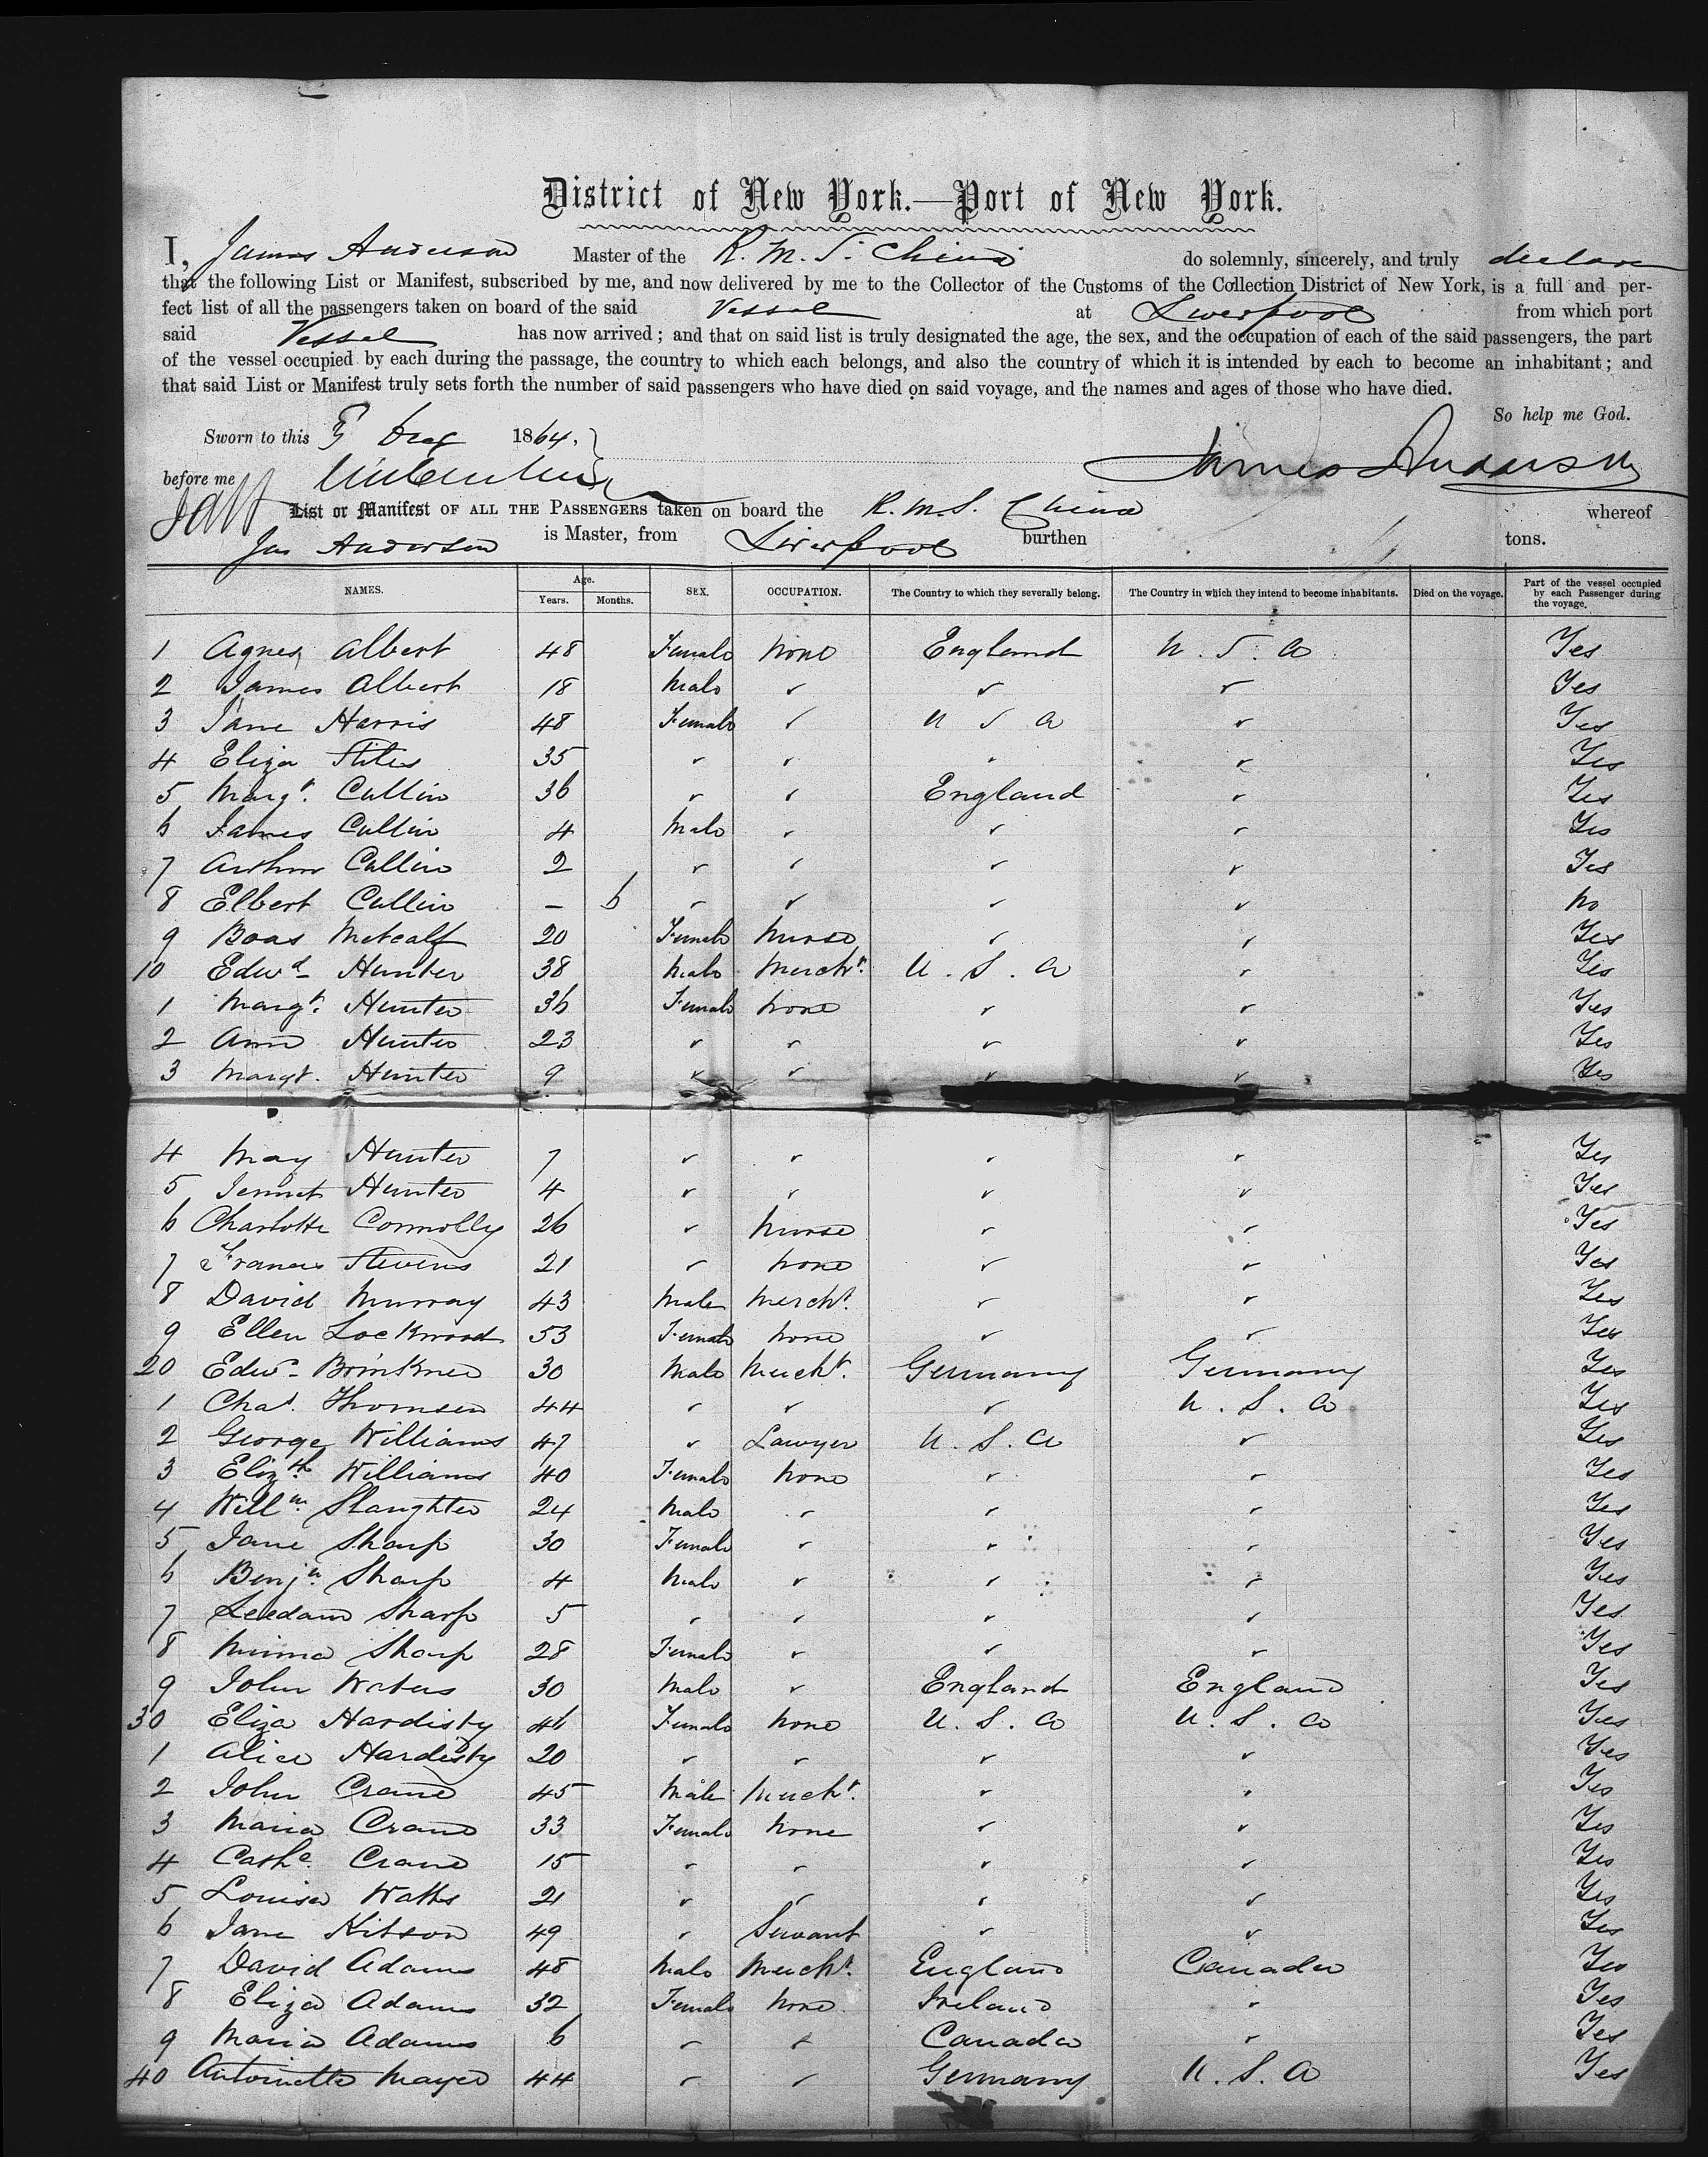 District of New York.—Port of New York.
I, James Anderson Master of the R. M. S. China do solemnly, sincerely, and truly declare
that the following List or Manifest, subscribed by me, and now delivered by me to the Collector of the Customs of the Collection District of New York, is a full and per-
fect list of all the passengers taken on board of the said Vessel at Liverpool from which port
said Vessel has now arrived; and that on said list is truly designated the age, the sex, and the occupation of each of the said passengers, the part
of the vessel occupied by each during the passage, the country to which each belongs, and also the country of which it is intended by each to become an inhabitant; and
that said List or Manifest truly sets forth the number of said passengers who have died on said voyage, and the names and ages of those who have died.
So help me God.
Sworn to this 1864.
before me James Anderson
List or Manifest OF ALL THE PASSENGERS taken on board the R.M.S. China whereof
Jas Anderson is Master, from Liverpool burthen tons.
NAMES. Age. Years. Months. SEX. OCCUPATION. The Country to which they severally belong. The Country in which they intend to become inhabitants. Died on the voyage. Part of the vessel occupied by each Passenger during the voyage.
1 Agnes Albert 48 Female None England U. S. A Yes
2 James Albert 18 Male ✓ ✓ ✓ Yes
3 Jane Harris 48 Female ✓ U S A ✓ Yes
4 Eliza Stiles 35 ✓ ✓ ✓ ✓ Yes
5 Margt. Cullin 36 ✓ ✓ England ✓ Yes
6 James Cullin 4 Male ✓ ✓ ✓ Yes
7 Arthur Cullin 2 ✓ ✓ ✓ ✓ Yes
8 Elbert Cullin – 6 ✓ ✓ ✓ ✓ No
9 Boas Metcalf 20 Female Nurse ✓ ✓ Yes
10 Edwd Hunter 38 Male Mercht. U. S. A ✓ Yes
1 Margt. Hunter 36 Female None ✓ ✓ Yes
2 Ann Hunter 23 ✓ ✓ ✓ ✓ Yes
3 Margt. Hunter 9 ✓ ✓ ✓ ✓ Yes
4 May Hunter 7 ✓ ✓ ✓ ✓ Yes
5 Jennet Hunter 4 ✓ ✓ ✓ ✓ Yes
6 Charlotte Connolly 26 ✓ Nurse ✓ ✓ Yes
7 Frances Stevens 21 ✓ None ✓ ✓ Yes
8 David Murray 43 Male Mercht. ✓ ✓ Yes
9 Ellen Lockwood 53 Female None ✓ ✓ Yes
20 Edwd Brinkner 30 Male Mercht. Germany Germany Yes
1 Chas. Thomsen 44 ✓ ✓ ✓ U. S. A Yes
2 George Williams 47 ✓ Lawyer U. S. A ✓ Yes
3 Elizth Williams 40 Female None ✓ ✓ Yes
4 Willm Slaughter 24 Male ✓ ✓ ✓ Yes
5 Jane Sharp 30 Female ✓ ✓ ✓ Yes
6 Benjn. Sharp 4 Male ✓ ✓ ✓ Yes
7 Leedam Sharp 5 ✓ ✓ ✓ ✓ Yes
8 Minna Sharp 28 Female ✓ ✓ ✓ Yes
9 John Waters 30 Male ✓ England England Yes
30 Eliza Hardisty 46 Female None U. S. A U. S. A Yes
1 Alice Hardisty 20 ✓ ✓ ✓ ✓ Yes
2 John Crane 45 Male Mercht. ✓ ✓ Yes
3 Maria Crane 33 Female None ✓ ✓ Yes
4 Cathe. Crane 15 ✓ ✓ ✓ ✓ Yes
5 Louisa Watts 21 ✓ ✓ ✓ ✓ Yes
6 Jane Kitson 49 ✓ Servant ✓ ✓ Yes
7 David Adams 48 Male Mercht. England Canada Yes
8 Eliza Adams 32 Female None Ireland ✓ Yes
9 Maria Adams 6 ✓ ✓ Canada ✓ Yes
40 Antoinette Mayer 44 ✓ ✓ Germany U. S. A Yes